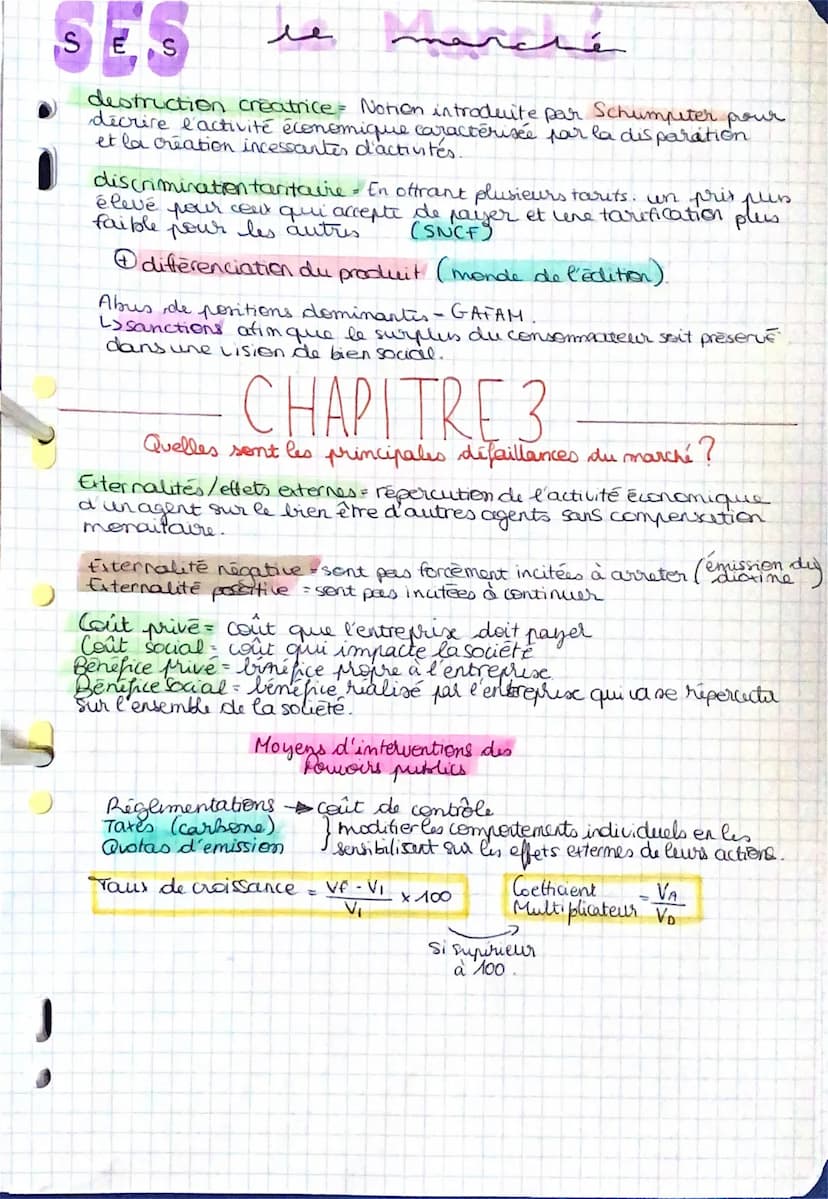 SES le Marché
destruction créatrice = Notion introduite par Schumputer pour
décrire l'activité économique caractérisée par la disparition
et la création incessantes d'activités.
discrimination tarifaire = En offrant plusieurs tarifs. un prix plus
élevé pour ceux qui accepte de payer et une tarification plus
faible pour les autres (SNCF)
+ différenciation du produit (monde de l'édition)
Abus de positions dominantes - GAFAM.
↳ sanctions afin que le surplus du consommateur soit préservé
dans une vision de bien social.
CHAPITRE 3
Quelles sont les principales défaillances du marché ?
Externalités/effets externes = répercution de l'activité économique
d'un agent sur le bien être d'autres agents sans compensation
monaitaire.
Externalité négative = sont pas forcément incitées à arreter (émission du
dioxine)
Externalité positive = sont pas incitées à continuer
Coût privé = coût que l'entreprise doit payer
Coût social = coût qui impacte la société
Bénéfice privé = bénéfice propre à l'entreprise
Bénéfice social = bénéfice réalisé par l'entreprise qui va se répercuta
sur l'ensemble de la société.
Moyens d'interventions des
Pouvoirs publics
Réglementations → coût de contrôle
Taxes (carbone) } modifier les comportements individuels en les
Quotas d'émission sensibilisant sur les effets externes de leurs actions.
Taux de croissance = VF - VI / VI × 100
Coefficient
Multiplicateur = VA / VD
Si supérieur
à 100.